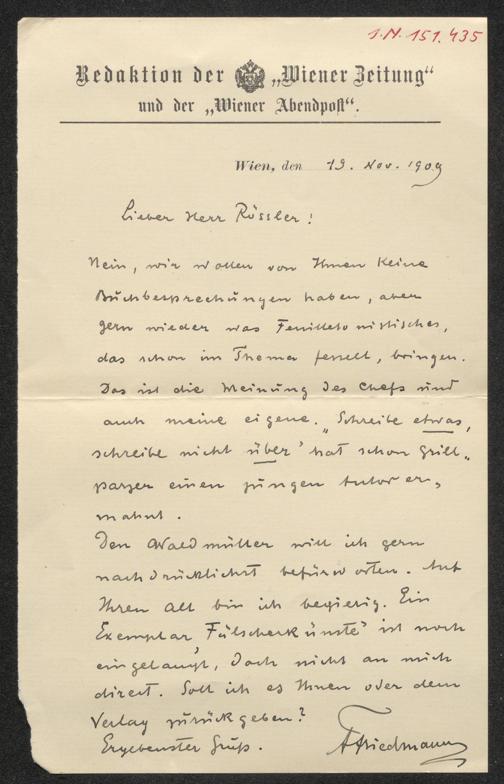 I.N. 151.435
Redaktion der „Wiener Zeitung“
und der „Wiener Abendpost“.
Wien, den 19. Nov. 1909
Lieber Herr Rössler!
Nein, wir wollen von Ihnen keine
Buchbesprechungen haben, aber
gern wieder was Feuilletonistisches,
das schon im Thema fesselt, bringen.
Das ist die Meinung des Chefs und
auch meine eigene. „Schreibe etwas,
schreibe nicht über" hat schon Grill„
parzer einen jungen Autor er„
mahnt.
Den Waldmüller will ich gern
nachdrücklichst befürworten. Auf
Ihren Alt bin ich begierig. Ein
Exemplar „Fälscherkünste" ist noch
eingelangt, doch nicht an mich
direct. Soll ich es Ihnen oder dem
Verlag zurückgeben?
Ergebenster Gruß.
AFriedmann